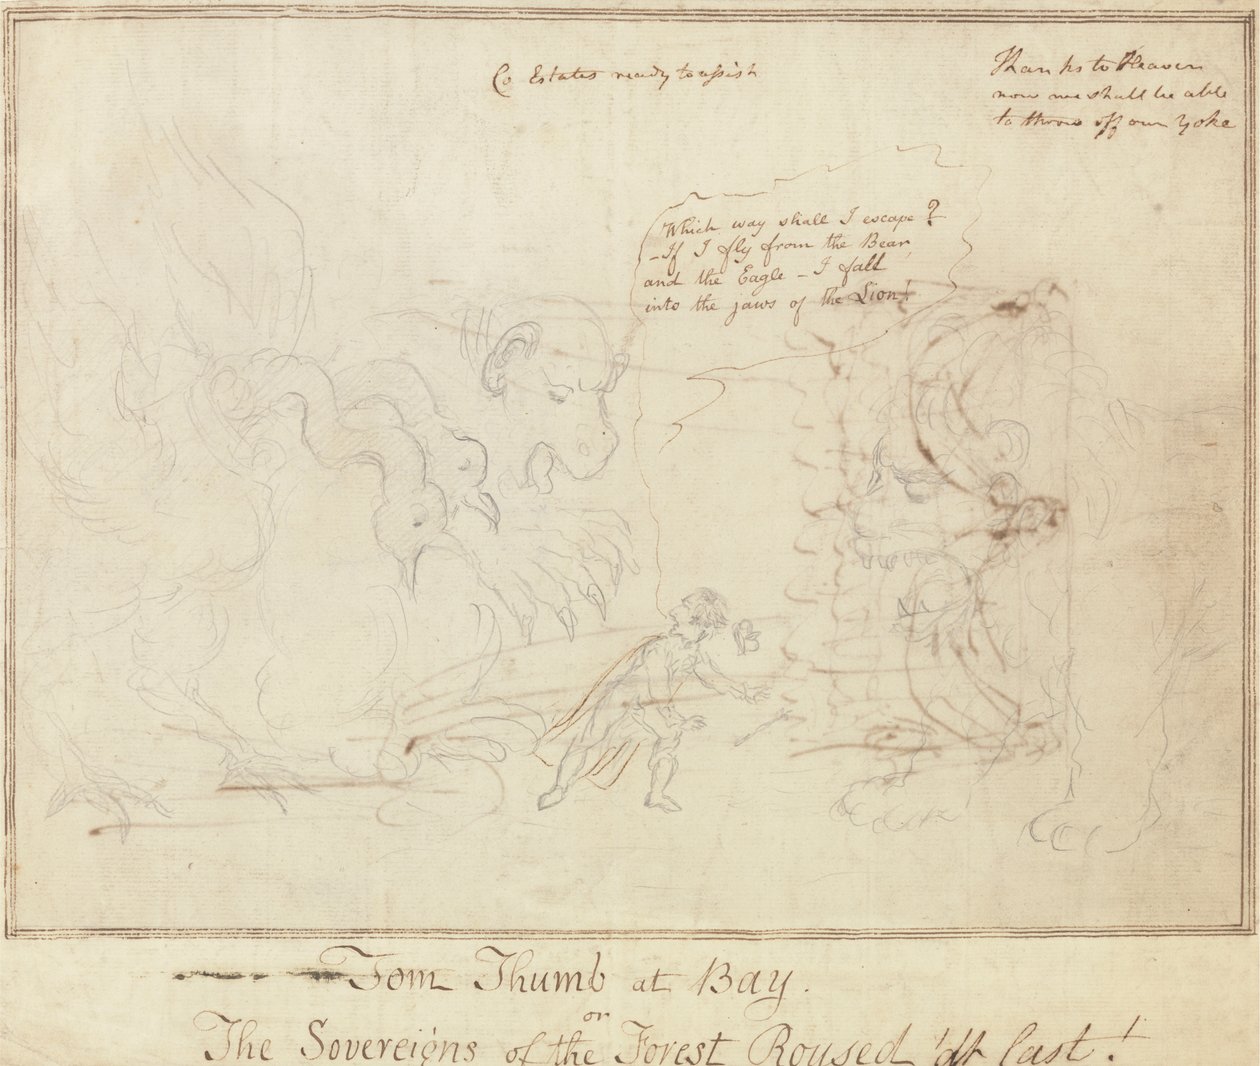 Co Estates ready to assist
Thanks to Heaven
now we shall be able
to throw off our Yoke
Which way shall I escape?
- If I fly from the Bear
and the Eagle - I fall
into the jaws of the Lion!
Tom Thumb at Bay.
or
The Sovereigns of the Forest Roused at last!